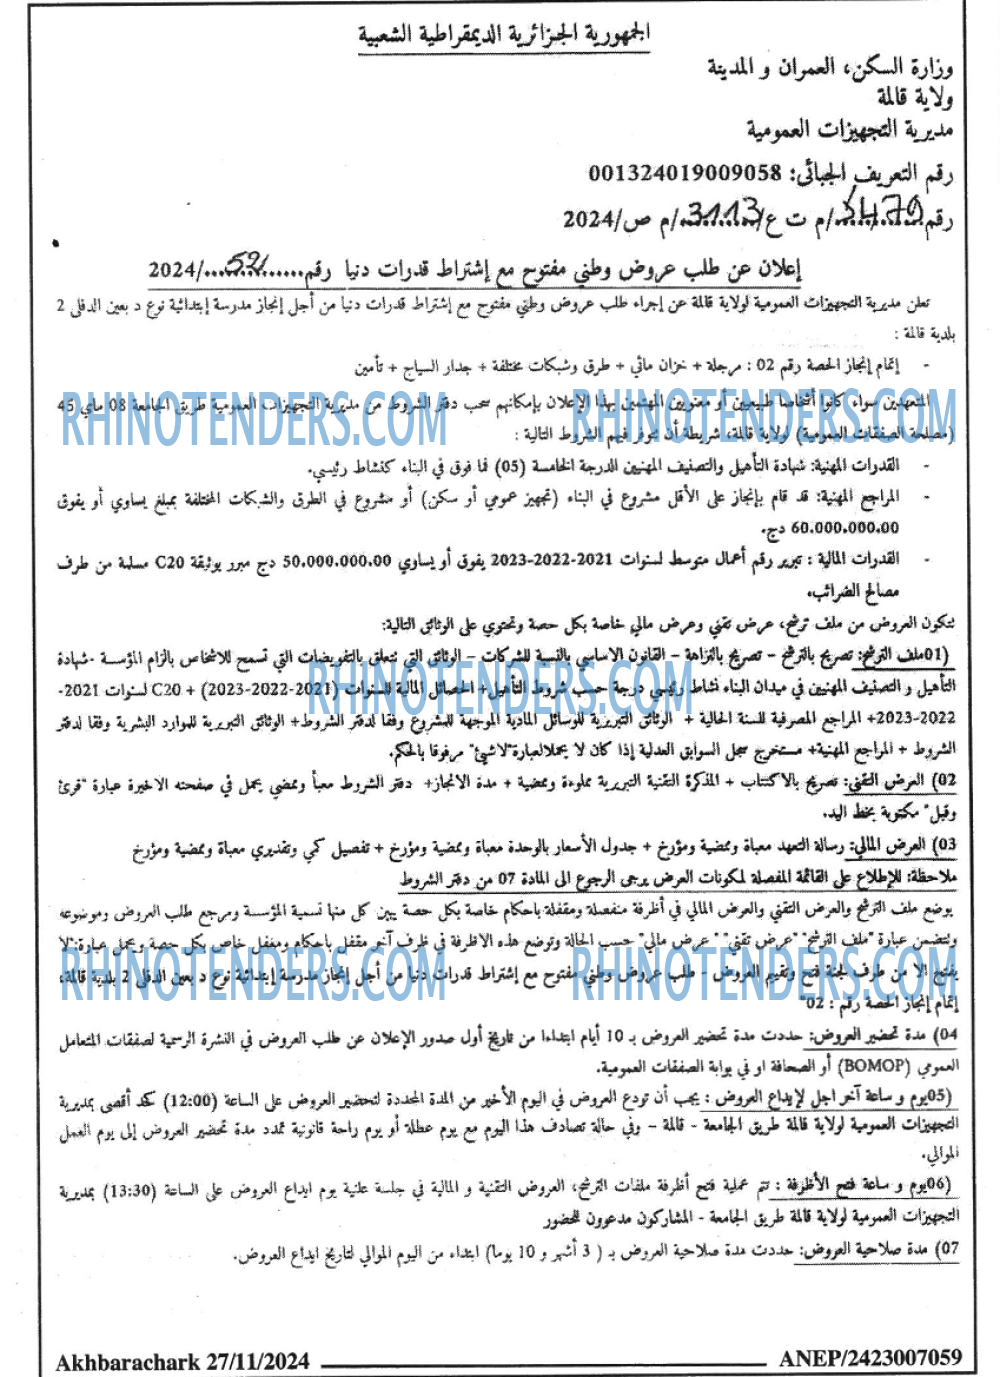 الجمهورية الجزائرية الديمقراطية الشعبية
وزارة السكن، العمران و المدينة
ولاية قالمة
مديرية التجهيزات العمومية
رقم التعريف الجبائي: 001324019009058
رقم.../م ت ع/...3113.../م ص/2024
إعلان عن طلب عروض وطني مفتوح مع إشتراط قدرات دنيا رقم.../2024
تعلن مديرية التجهيزات العمومية لولاية قالمة عن إجراء طلب عروض وطني مفتوح مع إشتراط قدرات دنيا من أجل إنجاز مدرسة إبتدائية نوع د بعين الدفلى 2
بلدية قالمة :
- إتمام إنجاز الحصة رقم 02 : مرجلة + خزان مائي + طرق وشبكات مختلفة + جدار السياج + تأمين
المتعهدين سواء كانوا أشخاصا طبيعيين أو معنويين المهتمين بهذا الإعلان بإمكانهم سحب دفتر الشروط من مديرية التجهيزات العمومية طريق الجامعة 08 ماي 45
RHINOTENDERS.COM RHINOTENDERS.COM
(مصلحة الصفقات العمومية) لولاية قالمة، شريطة أن تتوفر فيهم الشروط التالية :
- القدرات المهنية: شهادة التأهيل والتصنيف المهنيين الدرجة الخامسة (05) فما فوق في البناء كنشاط رئيسي.
- المراجع المهنية: قد قام بإنجاز على الأقل مشروع في البناء (تجهيز عمومي أو سكن) أو مشروع في الطرق والشبكات المختلفة بمبلغ يساوي أو يفوق
60.000.000.00 دج.
- القدرات المالية : تبرير رقم أعمال متوسط لسنوات 2021-2022-2023 يفوق أو يساوي 50.000.000.00 دج مبرر بوثيقة C20 مسلمة من طرف
مصالح الضرائب.
تتكون العروض من ملف ترشح، عرض تقني وعرض مالي خاصة بكل حصة وتحتوي على الوثائق التالية:
01)ملف الترشح: تصريح بالترشح – تصريح بالنزاهة – القانون الاساسي بالنسبة للشركات – الوثائق التي تتعلق بالتفويضات التي تسمح للاشخاص بالزام المؤسسة -شهادة
RHINOTENDERS.COM
التأهيل و التصنيف المهنيين في ميدان البناء نشاط رئيسي درجة حسب شروط التأهيل+ الحصائل المالية للسنوات (2021-2022-2023) + C20 لسنوات 2021-
2022-2023+ المراجع المصرفية للسنة الحالية + الوثائق التبريرية للوسائل المادية الموجهة للمشروع وفقا لدفتر الشروط+ الوثائق التبريرية للموارد البشرية وفقا لدفتر
الشروط + المراجع المهنية+ مستخرج سجل السوابق العدلية إذا كان لا يحمل العبارة"لاشيئ" مرفوقا بالحكم.
02) العرض التقني: تصريح بالاكتتاب + المذكرة التقنية التبريرية مملوءة وممضية + مدة الانجاز+ دفتر الشروط معبأ وممضي يحمل في صفحته الاخيرة عبارة "قرئ
وقبل" مكتوبة بخط اليد.
03) العرض المالي: رسالة التعهد معبأة وممضية ومؤرخ + جدول الأسعار بالوحدة معبأة وممضية ومؤرخ + تفصيل كمي وتقديري معبأة وممضية ومؤرخ
ملاحظة: للإطلاع على القائمة المفصلة لمكونات العرض يرجى الرجوع الى المادة 07 من دفتر الشروط
يوضع ملف الترشح والعرض التقني والعرض المالي في أظرفة منفصلة ومقفلة باحكام خاصة بكل حصة يبين كل منها تسمية المؤسسة ومرجع طلب العروض وموضوعه
وتتضمن عبارة "ملف الترشح" "عرض تقني" "عرض مالي" حسب الحالة وتوضع هذه الاظرفة في ظرف آخر مقفل باحكام ومغفل خاص بكل حصة ويحمل عبارة:"لا
RHINOTENDERS.COM RHINOTENDERS.COM
يفتح الا من طرف لجنة فتح وتقييم العروض - طلب عروض وطني مفتوح مع إشتراط قدرات دنيا من أجل إنجاز مدرسة إبتدائية نوع د بعين الدفلى 2 بلدية قالمة،
إتمام إنجاز الحصة رقم : 02"
04) مدة تحضير العروض: حددت مدة تحضير العروض بـ 10 أيام ابتداءا من تاريخ أول صدور الإعلان عن طلب العروض في النشرة الرسمية لصفقات المتعامل
العمومي (BOMOP) أو الصحافة او في بوابة الصفقات العمومية.
05)يوم و ساعة آخر اجل لإيداع العروض : يجب أن تودع العروض في اليوم الأخير من المدة المحددة لتحضير العروض على الساعة (12:00) كحد أقصى بمديرية
التجهيزات العمومية لولاية قالمة طريق الجامعة - قالمة – وفي حالة تصادف هذا اليوم مع يوم عطلة أو يوم راحة قانونية تمدد مدة تحضير العروض إلى يوم العمل
الموالي.
06)يوم و ساعة فتح الأظرفة : تتم عملية فتح أظرفة ملفات الترشح، العروض التقنية و المالية في جلسة علنية يوم ايداع العروض على الساعة (13:30) بمديرية
التجهيزات العمومية لولاية قالمة طريق الجامعة - المشاركون مدعوون للحضور
07) مدة صلاحية العروض: حددت مدة صلاحية العروض بـ ( 3 أشهر و 10 يوما) ابتداء من اليوم الموالي لتاريخ ايداع العروض.
Akhbarachark 27/11/2024 ANEP/2423007059